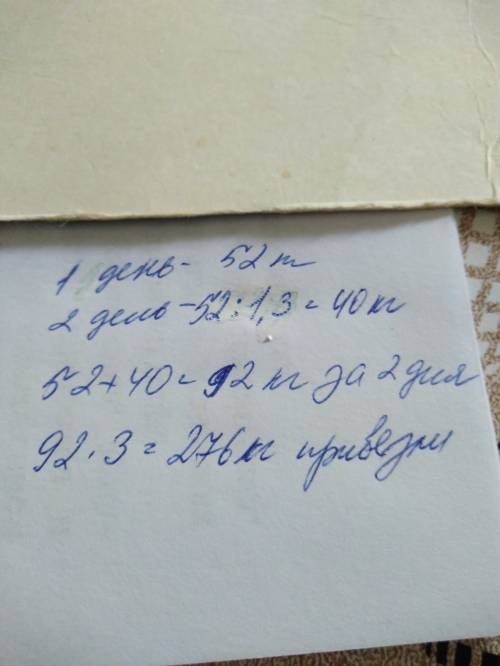 1 день - 52 т
2 день - 52 : 1,3 = 40 кг
52 + 40 = 92 кг за 2 дня
92 · 3 = 276 кг привезли